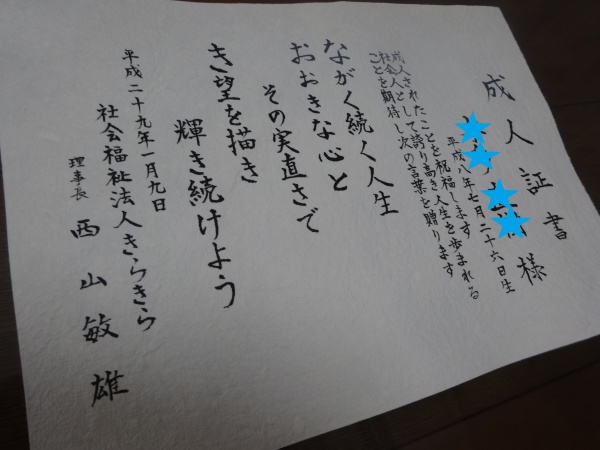 成人証書
様
平成八年七月二十六日生
成人されたことを祝福します
社会人として誇り高き人生を歩まれる
ことを期待し次の言葉を贈ります
ながく続く人生
おおきな心と
その実直さで
き望を描き
輝き続けよう
平成二十九年一月九日
社会福祉法人きらきら
理事長 西山敏雄